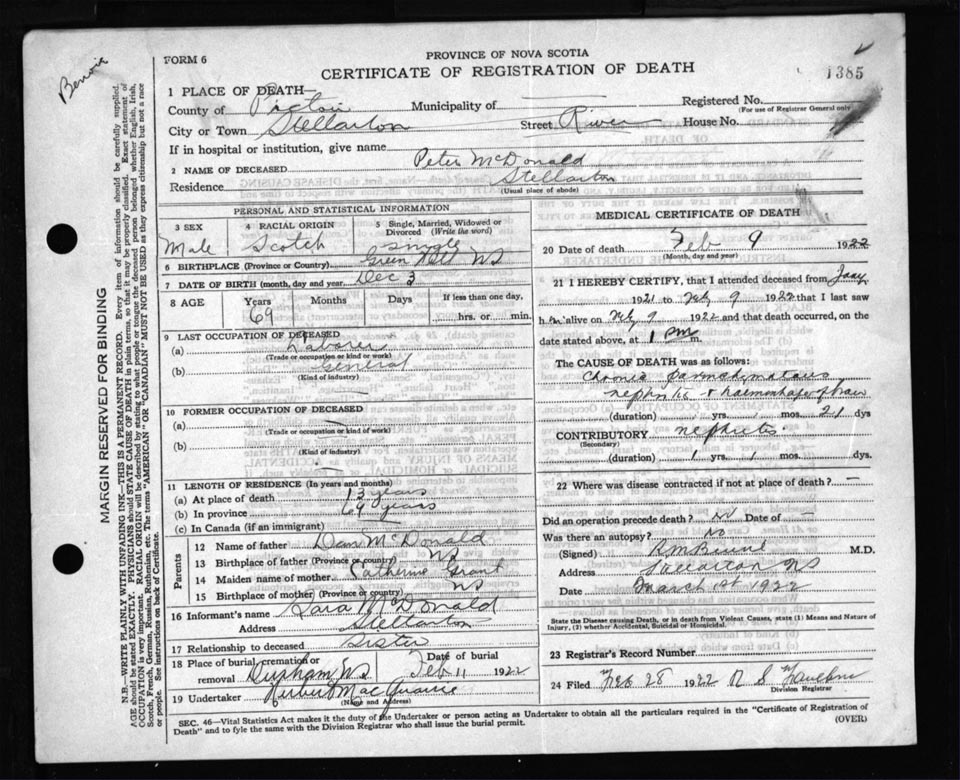 Benoit
FORM 6
PROVINCE OF NOVA SCOTIA
CERTIFICATE OF REGISTRATION OF DEATH
1385
1 PLACE OF DEATH—
County of Pictou Municipality of — Registered No.
(For use of Registrar General only)
City or Town Stellarton Street River House No.
If in hospital or institution, give name
2 NAME OF DECEASED Peter McDonald
Residence Stellarton
(Usual place of abode)
PERSONAL AND STATISTICAL INFORMATION
3 SEX 4 RACIAL ORIGIN 5 Single, Married, Widowed or Divorced (Write the word)
Male Scotch Single
6 BIRTHPLACE (Province or Country) Green Hill NS
7 DATE OF BIRTH (month, day and year) Dec 3
8 AGE Years Months Days If less than one day,
69 hrs. or min.
9 LAST OCCUPATION OF DECEASED
(a) Laborer
(Trade or occupation or kind or work)
(b) General
(Kind of industry)
10 FORMER OCCUPATION OF DECEASED
(a) —
(Trade or occupation or kind of work)
(b) —
(Kind of industry)
11 LENGTH OF RESIDENCE (In years and months)
(a) At place of death 13 years
(b) In province 69 years
(c) In Canada (if an immigrant) —
Parents
12 Name of father Dan McDonald
13 Birthplace of father (Province or country) NS
14 Maiden name of mother Catherine Grant
15 Birthplace of mother (Province or country) NS
16 Informant's name Sara McDonald
Address Stellarton
17 Relationship to deceased Sister
18 Place of burial, cremation or removal Durham NS Date of burial Feb 11 1922
19 Undertaker MacQuarrie
(Name and Address)
MEDICAL CERTIFICATE OF DEATH
20 Date of death Feb 9 1922
(Month, day and year)
21 I HEREBY CERTIFY, that I attended deceased from Jany
1921 to Feb 9 1922 that I last saw
him alive on Feb 9 1922 and that death occurred, on
date stated above, at 1 pm m.
The CAUSE OF DEATH was as follows:
Chronic parenchymatous
nephritis & haemorrhage of brain
(duration) 1 yrs. 1 mos. 21 dys
CONTRIBUTORY nephritis
(Secondary)
(duration) 1 yrs. 1 mos. dys.
22 Where was disease contracted if not at place of death? —
Did an operation precede death? No Date of —
Was there an autopsy? No
(Signed) M.D.
Address Stellarton NS
Date March 1st 1922
State the Disease causing Death, or in death from Violent Causes, state (1) Means and Nature of
Injury, (2) whether Accidental, Suicidal or Homicidal.
23 Registrar's Record Number
24 Filed Feb 28 1922
Division Registrar
SEC. 46—Vital Statistics Act makes it the duty of the Undertaker or person acting as Undertaker to obtain all the particulars required in the "Certificate of Registration of
Death" and to fyle the same with the Division Registrar who shall issue the burial permit.
(OVER)
MARGIN RESERVED FOR BINDING
N.B.—WRITE PLAINLY WITH UNFADING INK—THIS IS A PERMANENT RECORD. Every item of information should be carefully supplied.
AGE should be stated EXACTLY. PHYSICIANS should STATE CAUSE OF DEATH in plain terms, so that it may be properly classified. Exact statement of
OCCUPATION is very important. RACIAL ORIGIN will be described by stating to what people or tongue the deceased person belonged whether English, Irish,
Scotch, French, German, Russian, Ruthenian, etc. The terms "AMERICAN" OR "CANADIAN" MUST NOT BE USED as they express citizenship but not a race
or people. See instructions on back of Certificate.